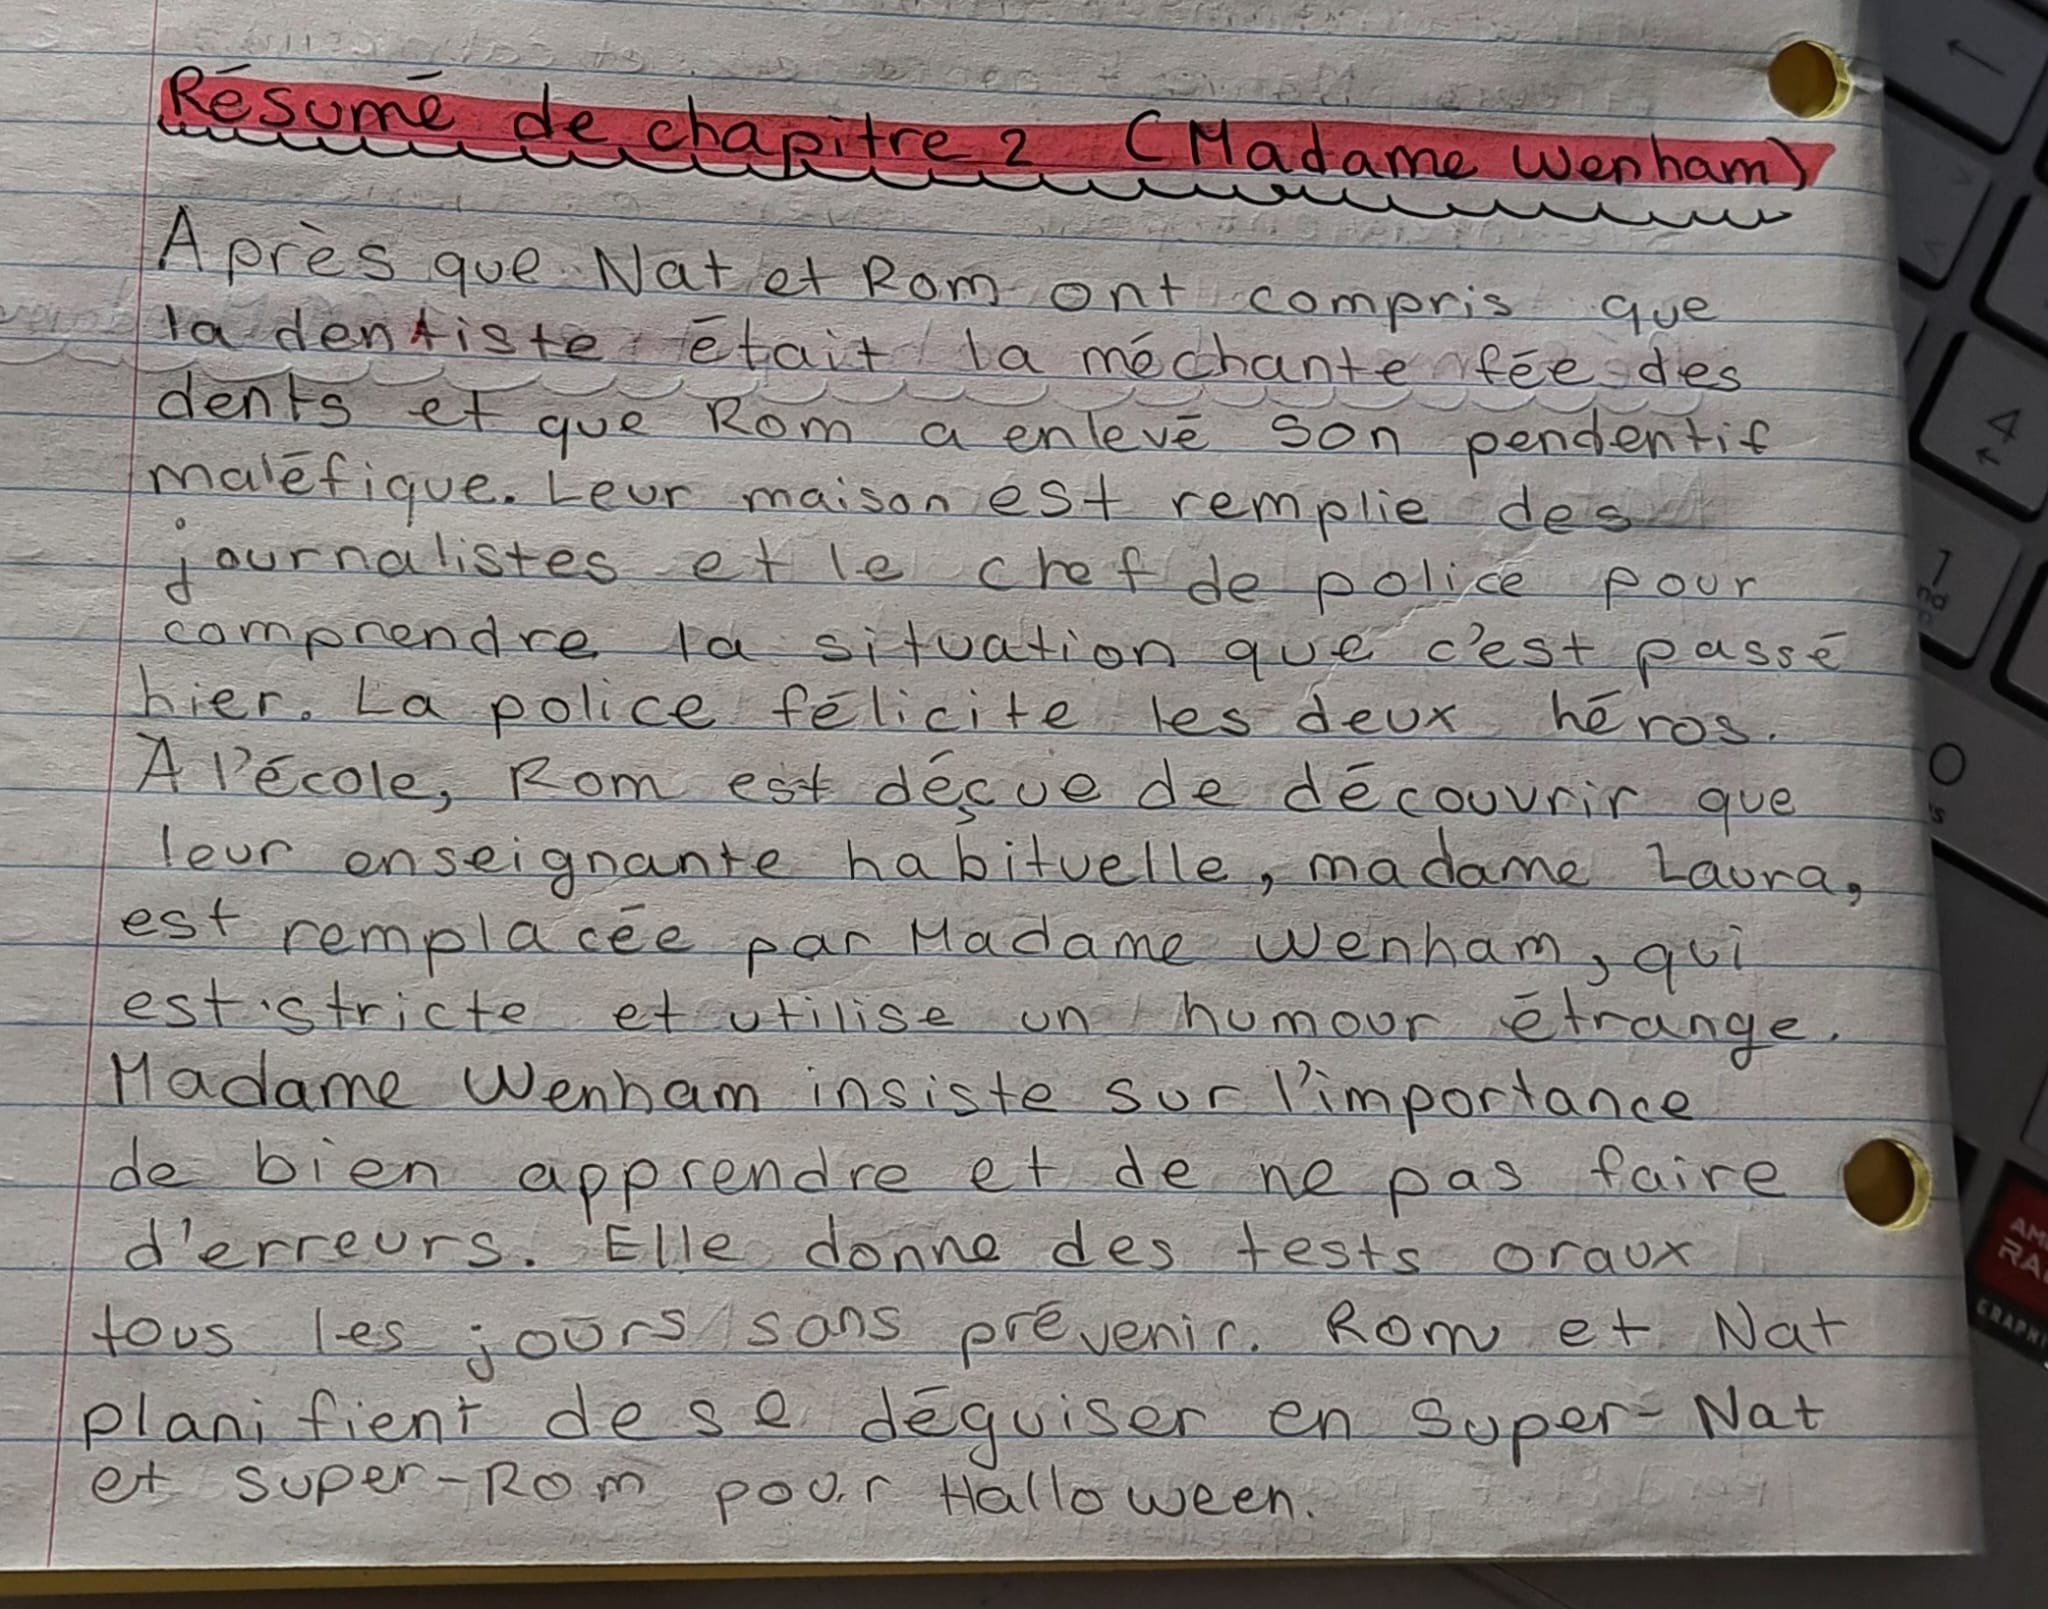 Résumé de chapitre 2 (Madame Wenham)
Après que Nat et Rom ont compris que
la dentiste était la méchante fée des
dents et que Rom a enlevé son pendentif
maléfique. Leur maison est remplie des
journalistes et le chef de police pour
comprendre la situation que c'est passé
hier. La police félicite les deux héros.
À l'école, Rom est déçue de découvrir que
leur enseignante habituelle, madame Laura,
est remplacée par Madame Wenham, qui
est stricte et utilise un humour étrange.
Madame Wenham insiste sur l'importance
de bien apprendre et de ne pas faire
d'erreurs. Elle donne des tests oraux
tous les jours sans prévenir. Rom et Nat
planifient de se déguiser en Super-Nat
et super-Rom pour Halloween.
4
1
0